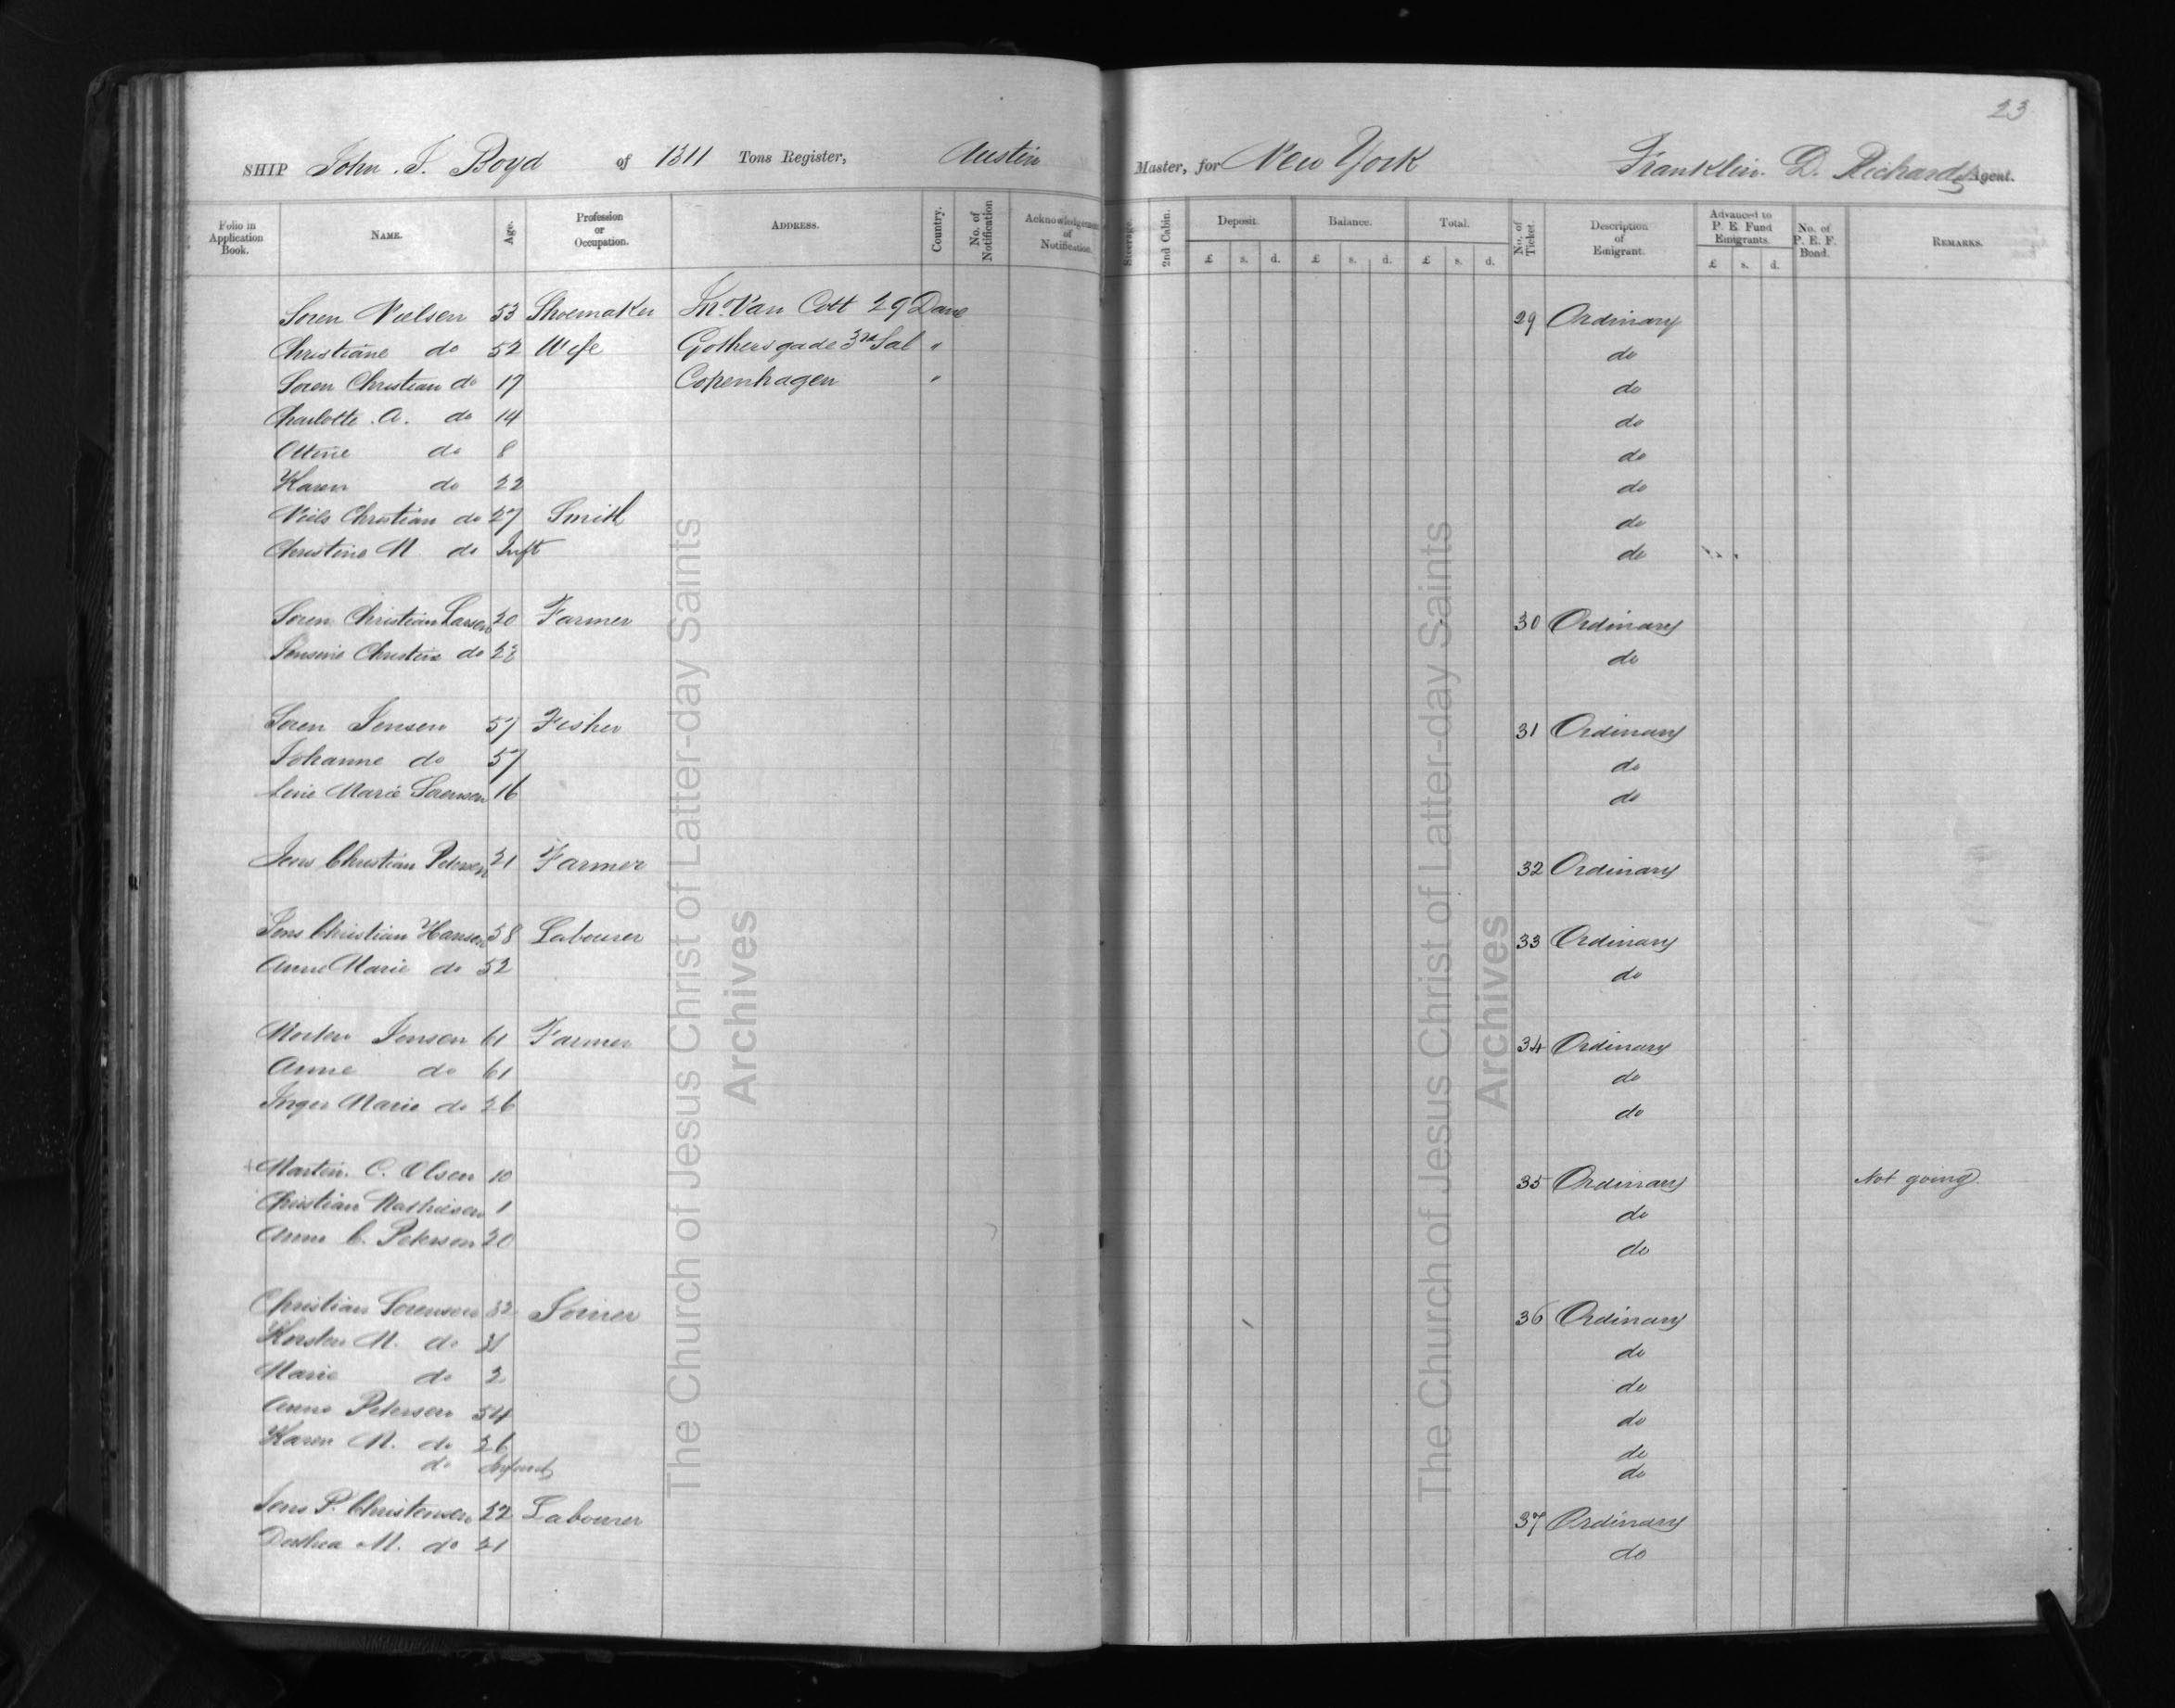 23
SHIP John J. Boyd of 1311 Tons Register, Austin Master, for New York Franklin D. Richards Agent.
Folio in Application Book. NAME. Age. Profession or Occupation. ADDRESS. Country. No. of Notification Acknowledgement of Notification. Steerage. 2nd Cabin. Deposit. Balance. Total. No. of Ticket. Description of Emigrant. Advanced to P. E. Fund Emigrants. No. of P. E. F. Bond. REMARKS.
£ s. d. £ s. d. £ s. d. £ s. d.
Soren Nielsen 53 Shoemaker Mr Van Cott 29 Dane 29 Ordinary
Christiane do 52 Wife Gothersgade 3rd Sal " do
Soren Christian do 17 Copenhagen " do
Charlotte A. do 14 do
Ottine do 8 do
Karen do 22 do
Niels Christian do 27 Smith do
Christine M. do Inft do
Soren Christian Larsen 20 Farmer 30 Ordinary
Christine do do
Soren Jensen 57 Fisher 31 Ordinary
Johanne do 57 do
Marie Sorensen 16 do
Jens Christian Petersen 21 Farmer 32 Ordinary
Jens Christian Hansen 58 Labourer 33 Ordinary
Anne Marie do 52 do
Morten Jensen 61 Farmer 34 Ordinary
Anne do 61 do
Inger Marie do 26 do
Martin C. Olsen 10 35 Ordinary Not going
Christian Mathiesen 1 do
Anne C. Peterson 20 do
Christian Sorensen 32 Joiner 36 Ordinary
Kirsten M. do 31 do
Marie do 2 do
Anne Petersen 54 do
Karen M. do 26 do
do Infant do
Jens P. Christensen 22 Labourer 37 Ordinary
Dorthea M. do 21 do
The Church of Jesus Christ of Latter-day Saints
Archives
The Church of Jesus Christ of Latter-day Saints
Archives